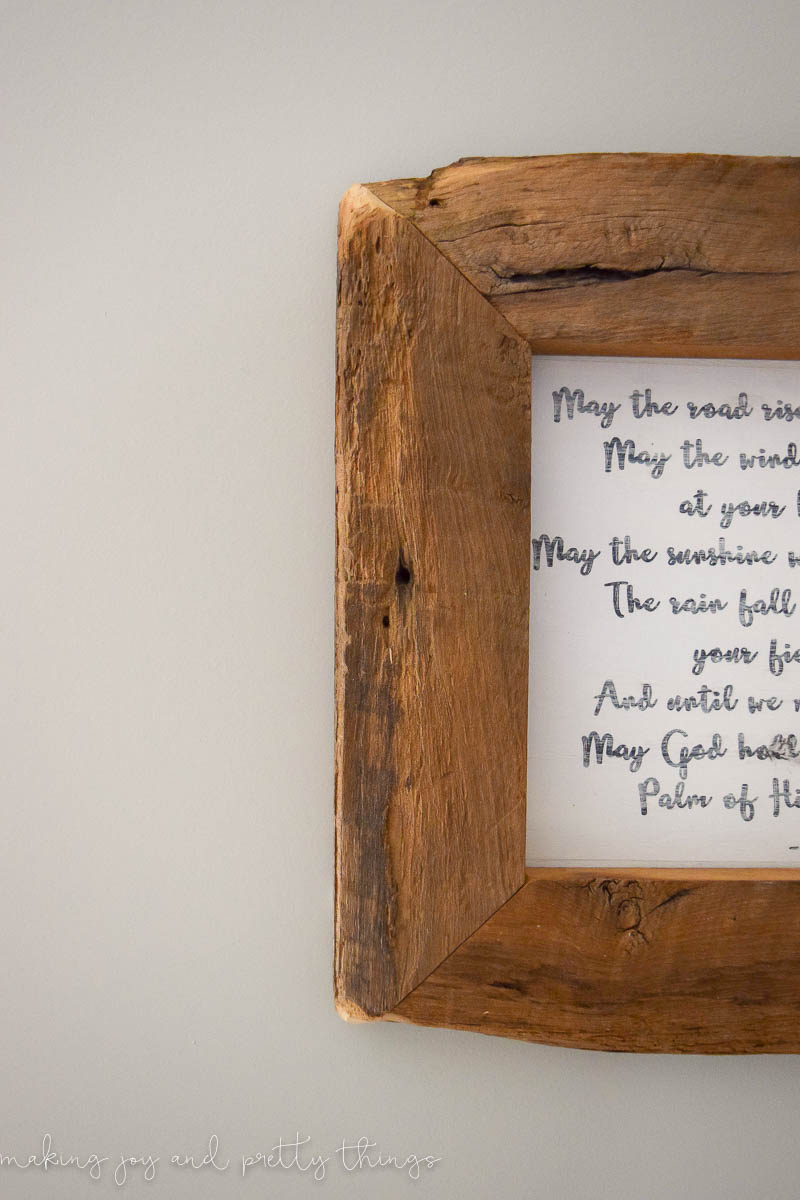 May the road rise
May the wind
at your
May the sunshine w
The rain fall
your fie
And until we
May God hold
Palm of Hi
making joy and pretty things